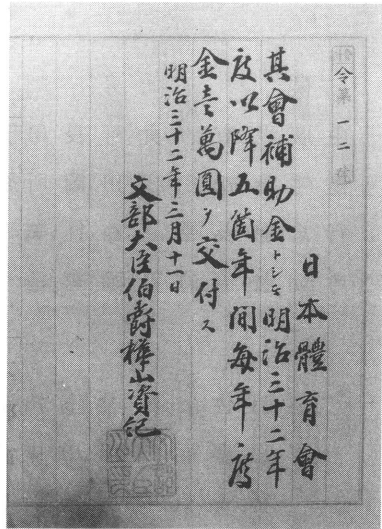 令第一二號
日本體育會
其會補助金トシテ明治三十二年
度以降五箇年間每年度
金壹萬圓ヲ交付ス
明治三十二年三月十一日
文部大臣伯爵樺山資紀